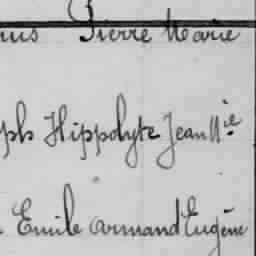 Pierre Marie
Hippolyte Jean Mie
Emile Armand Eugène